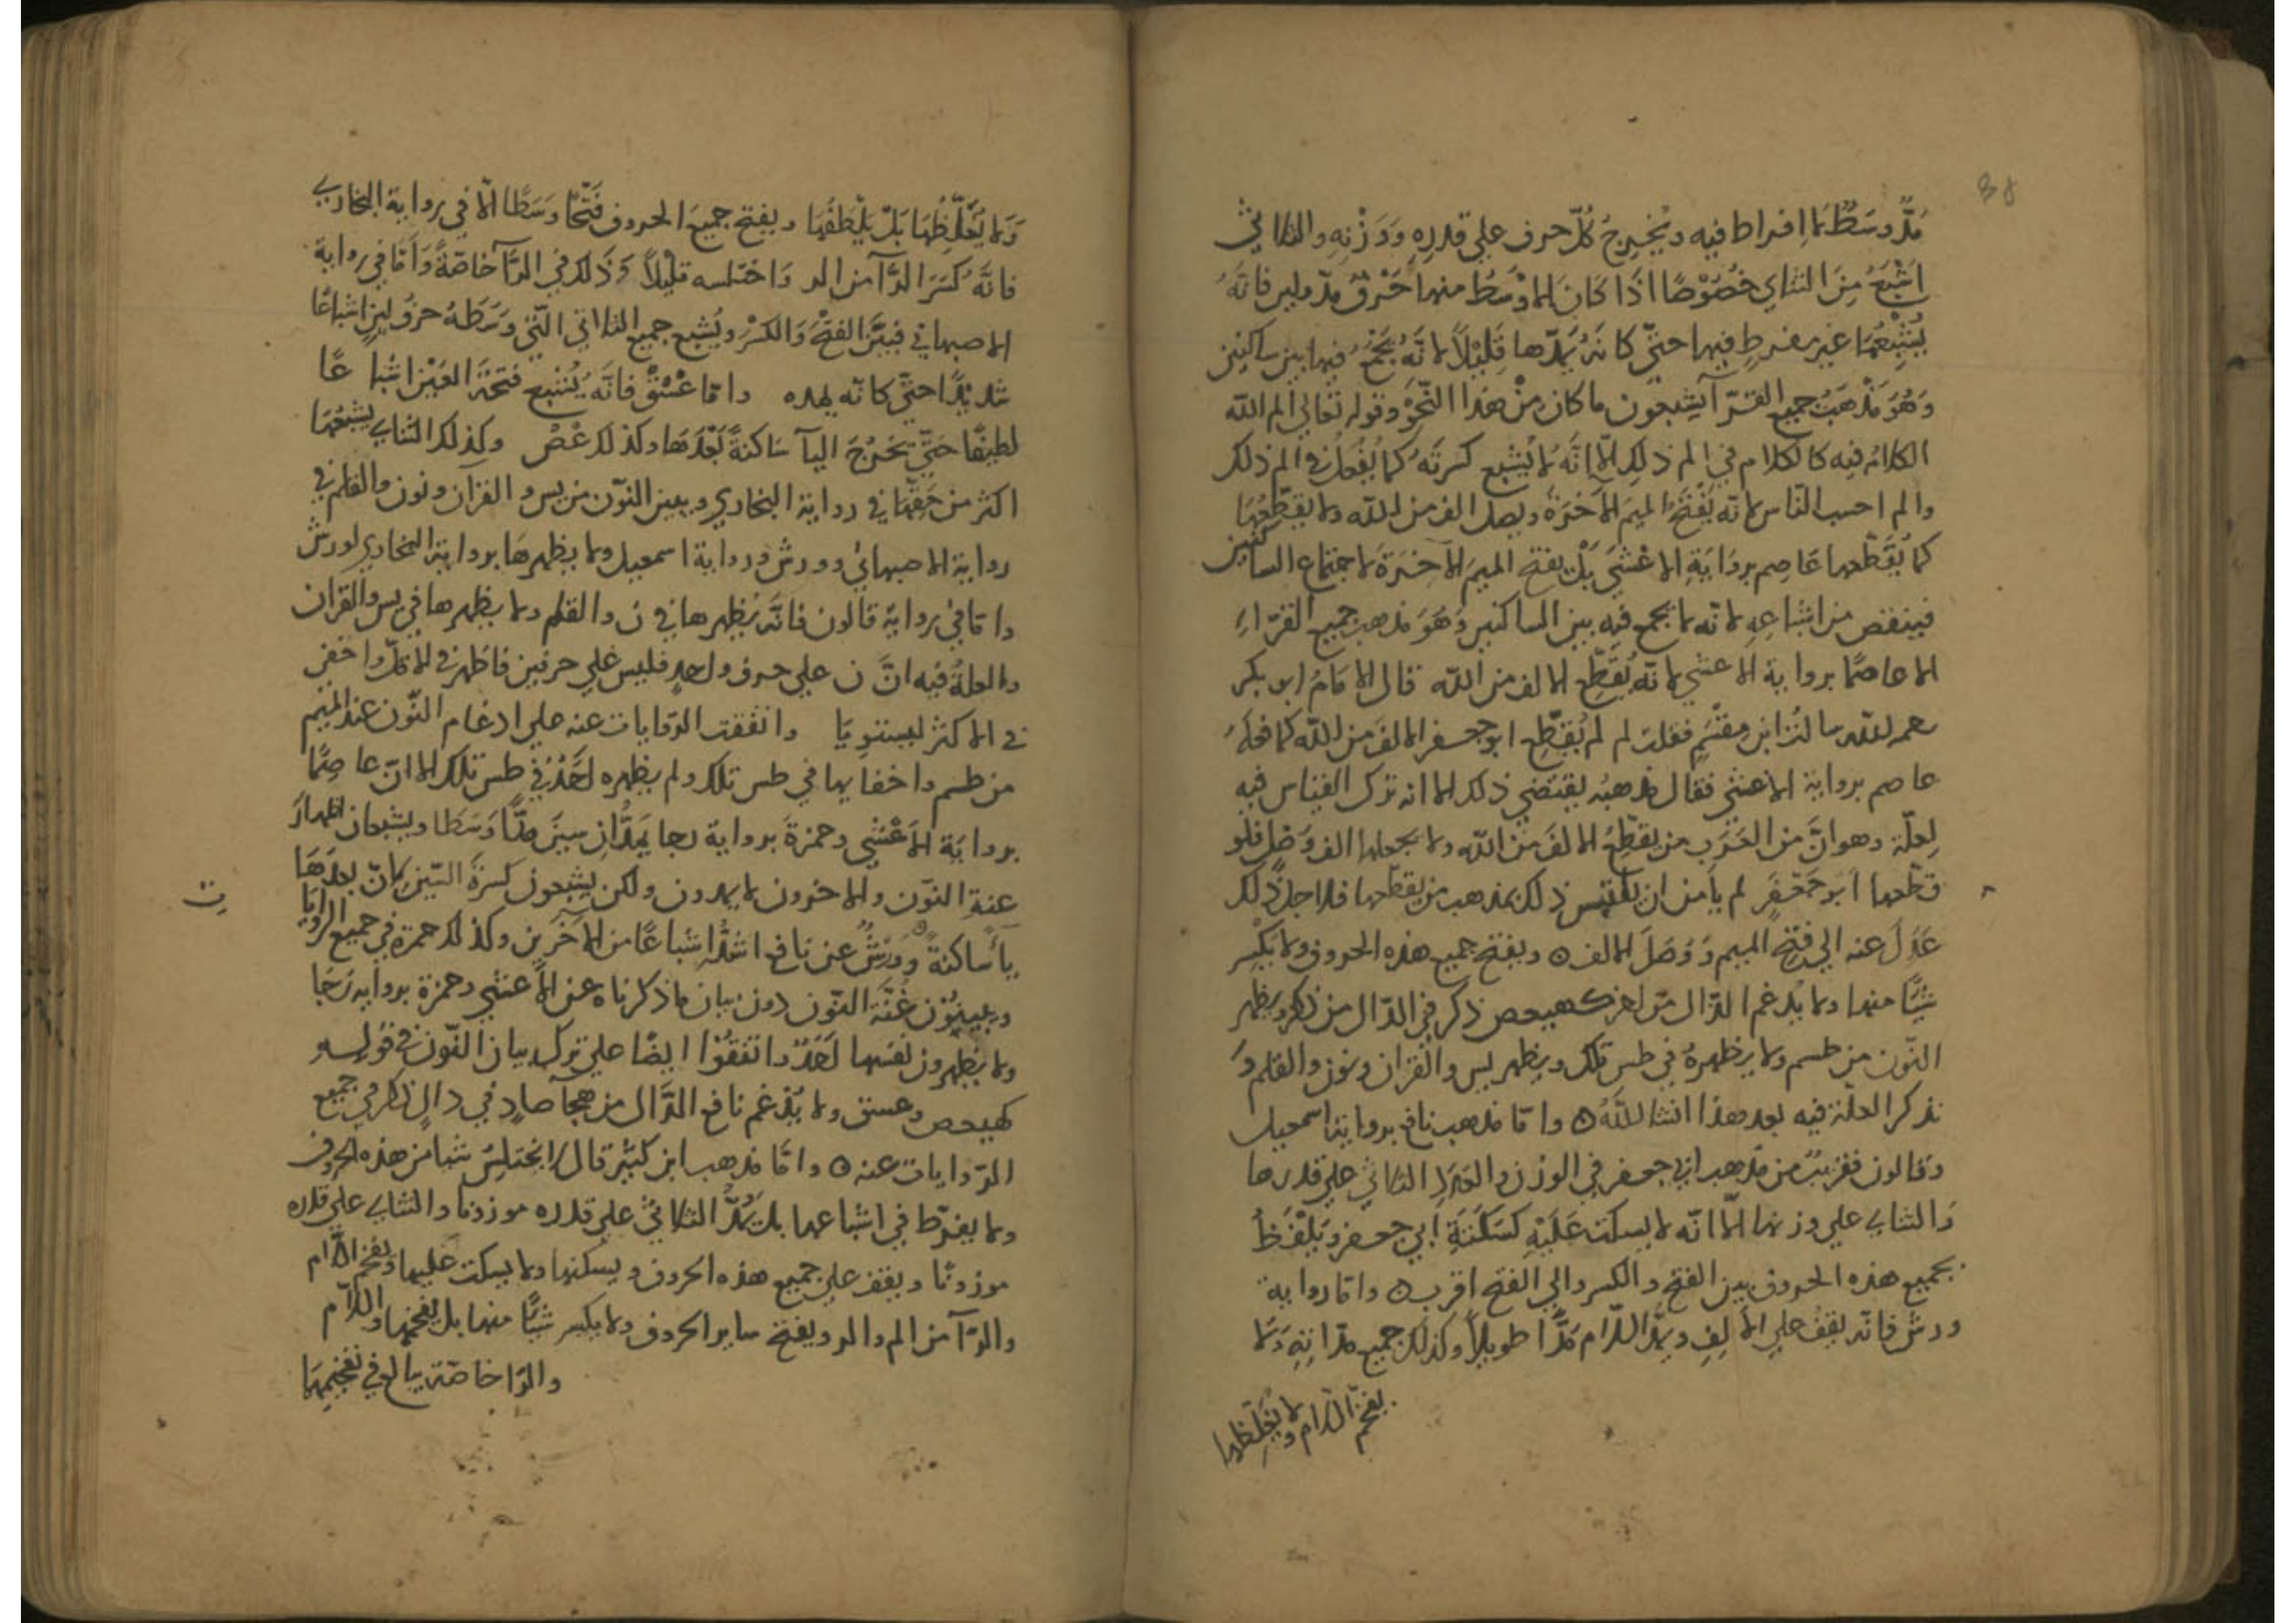 38
مَدٌّ وسَطٌ لا افراط فيه ويُخرِجُ كُلّ حرف علي قدرِهِ ووَزْنِهِ والثلاثي
اَشْبَعُ مِنَ الثنائي خُصُوْصًا اذَا كَانَ الاَوْسَطُ منها حَرْفَ مدّ ولين فانَّهُ
يُشْبِعُهَا غير مفرطٍ فيها حتّي كانهُ يَمُدّها قَلِيْلًا لانّهُ يَجْمَعُ فيها بين ساكنين
وَهُوَ مَذْهَبُ جميع القرّآ يشبعون ما كان مِنْ هَذا النّحْوِ وقوله تعالي الم الله
الكلامُ فيه كالكلام في الم ذلك اِلّا انَّهُ لا يُشْبِع كسرتَهُ كما يُفْعَلُ في الم ذلك
والم احسب النّاس لانه يَفْتَحُ الميمَ الآخرَةَ ويصل الف من الله ولا يقطّعُهَا
كما يُقَطّعها عَاصِم بروَايَةِ الاعْشَي بَلْ يفتح الميم الآخرَةَ لاجتماع الساكنين
فينقص من اشباعِهِ لانه لا يجمع فيه بين الساكنين وَهُوَ مذهب جميع القرّاءِ
الا عاصمًا برواية الاعشي لانّه يُقَطّع الالف من الله قال الامَامُ ابو بكر
رحمه الله سالتُ ابن مِقْسَمٍ فقلت لم لم يُقطّع ابو جعفر الالفَ من الله كما فعلَهُ
عاصم برواية الاعشي فقال مذهبُه يقتضي ذلك الا انه ترك القياس فيه
لعلّة وهو انَّ من العَرَب من يقطّعُ الالفَ من الله ولا يجعلها الف وَصْلٍ فلو
قطّعها ابو جَعْفَرٍ لم يأمن ان يلتبس ذلك بمذهب من يقطّعها فلاجل ذلك
عَدَلَ عنه الي فتح الميم وَوَصَلَ الالف ٥ ويفتح جميع هذه الحروف ولا يكسر
شيئًا منها ولا يُدغم الدّال من اخر كهيعص ذكر في الذّال من ذكر ويظهر
النّون من طسم ولا يظهرهُ في طس تلك ويظهر يس والقران ونون والقلم وَ
نذكر العلّة فيه بعد هذا انشا اللهُ ٥ وامّا مذهب نافع برواية اسمعيل
وقالون فقريبٌ من مَذهب ابي جعفر في الوزن والعَدَدِ الثلاثي علي قدرها
وَالثنائي علي وزنها الّا انّه لا يسكت عَلَيْهِ كَسَكْتَةِ ابي جعفر ويَلْفَظُ
بجميع هذه الحروف بين الفتح والكسر والي الفتح اقرب ٥ وامّا رواية
ورش فانّه يقفُ علي الالِفِ ويَمُدُّ اللّام مَدًّا طويلًا وكذلك جميع مدّاتِهِ وَلا
يفخّم اللّام ولا يُغَلّظها
وَلا يُغَلِّظُهَا بَلْ يُلْطِفُهَا ويفتح جميعَ الحروف فَتْحًا وَسَطًا الّا في رواية البخاري
فانّهُ كَسَرَ الرّآ من الر وَاختلسه قليْلًا وَذَلكَ في الرّآ خاصّةً وَامّا في رواية
الاصبهاني فبَيْنَ الفتْحِ وَالكسْر ويُشبع جميع الثلاثي الّتي وَسَطَهُ حرفُ لينٍ اشباعًا
شديدًا حتّي كانّه يمده   وامّا عسق فانّه يُشبع فتحة العَيْن اشباعًا
لطيفًا حتّي تخرُجَ اليآ سَاكنةً بَعْدَهَا وكذلك عص وكذلك الثنائي يشبعُهَا
اكثر من حَقّها في رواية البخاري ويبين النّون من يس والقران ونون والقلم في
رواية الاصبهاني وورش ورواية اسمعيل ولا يظهرهَا برواية البخاري لورش
وامّا في رواية قالون فانّه يُظهرها في ن والقلم ولا يظهرها في يس والقران
والعلةُ فيه انَّ ن علي حرف واحدٍ فليس علي حرفين فاظهر في الاقلّ واخفي
في الاكثر ليستويَا   واتفقت الرّوايات عنه علي ادغام النّون عند الميم
من طسم واخفايها في طس تلك ولم يظهره اَحَدٌ في طس تلك الا انّ عاصِمًا
بروايَة الاَعْشي وحمزةَ برواية رجا يَمُدَّانِ سينَ مَدًّا وَسَطا ويشبعان اظهارَ
غنةِ النّون والآخرون لا يمدون ولكن يشبعون كسرَةَ السّين لانّ بعدَهَا
يأسَاكنةً وَوَرْشٌ عن نافع اشَدُّ اِشْبَاعًا من الآخَرِين وكذلك حمزة في جميع الروايا
ت
ويبينوْن غُنَّةَ النّون دون بيان ما ذكرناهُ عن الاَعشي وحمزة برواية رَجَا
ولا يظهرون نفسها اَحَدٌ واتفقُوْا ايضًا علي ترك بيان النّون في قولِهِ
كهيعص وعسق ولا يُدْغم نافع الدّال من هجآ صادٍ في ذال ذكر في جميع
الرّوايات عنه ٥ وامّا مذهب ابن كثير قال لا يختلِسُ شيا من هذه الحروف
ولا يفرّط في اشباعها بل يَمُدُّ الثلاثيّ علي قدره موزونا والثنائي علي قدره
موزونًا ويقف علي جميع هذه الحروف ويسكنها ولا يسكت عليها ويفخم اللّام
والرّآ من الم والر ويفتح ساير الحروف ولا يكسر شيئًا منها بل يفخمها واللّام
والرّا خاصّة يبالغ في تفخيمهَا